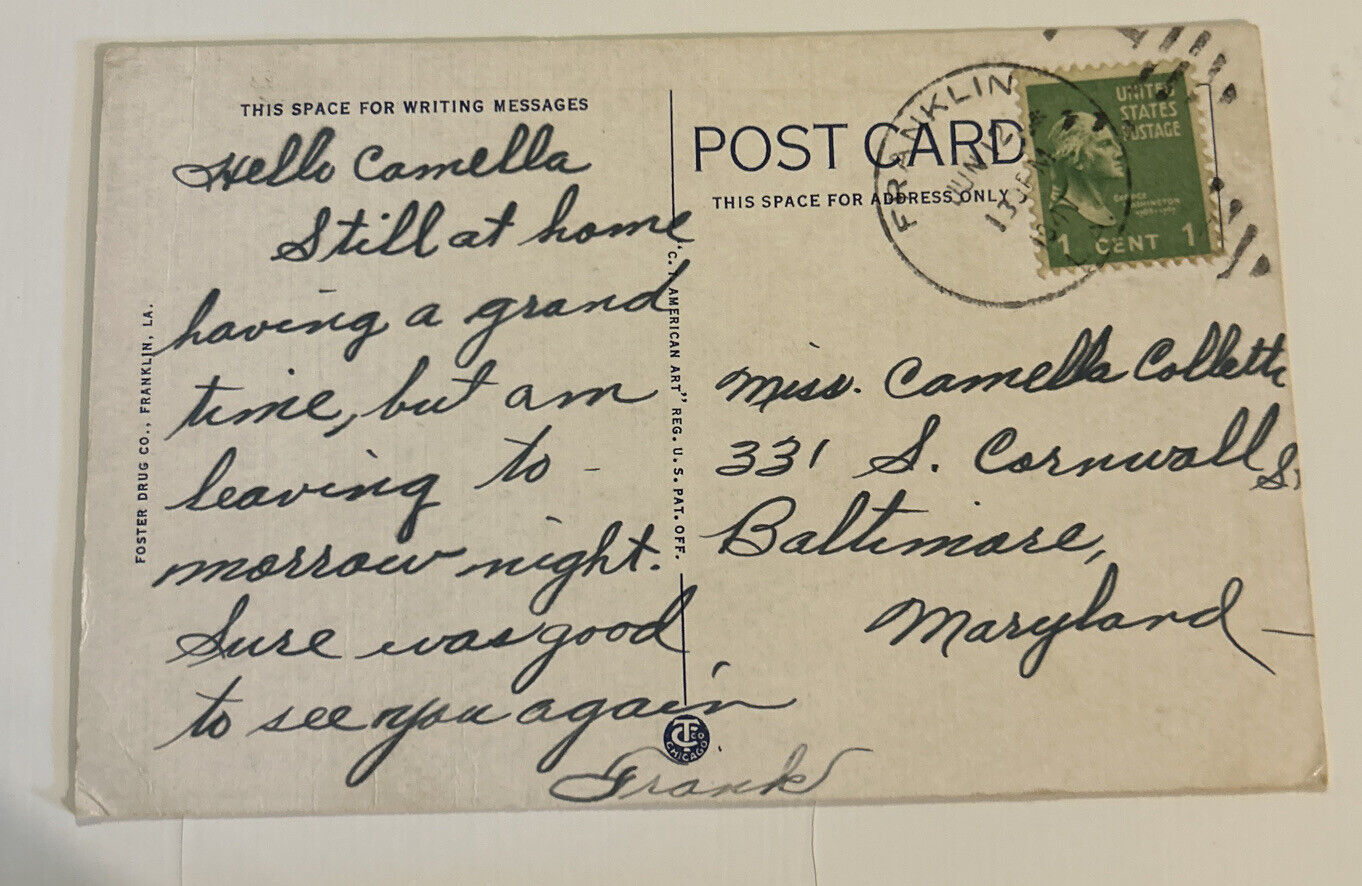 THIS SPACE FOR WRITING MESSAGES
Hello Camella
Still at home
having a grand
time, but am
leaving to -
morrow night.
Sure was good
to see you again
Frank
FOSTER DRUG CO., FRANKLIN, LA.
"C.T. AMERICAN ART" REG. U. S. PAT. OFF.
CT CO
CHICAGO
POST CARD
THIS SPACE FOR ADDRESS ONLY
FRANKLIN
JUN
UNITED
STATES
POSTAGE
GEORGE
WASHINGTON
1 CENT 1
Miss. Camella Collette
331 S. Cornwall St
Baltimore,
Maryland